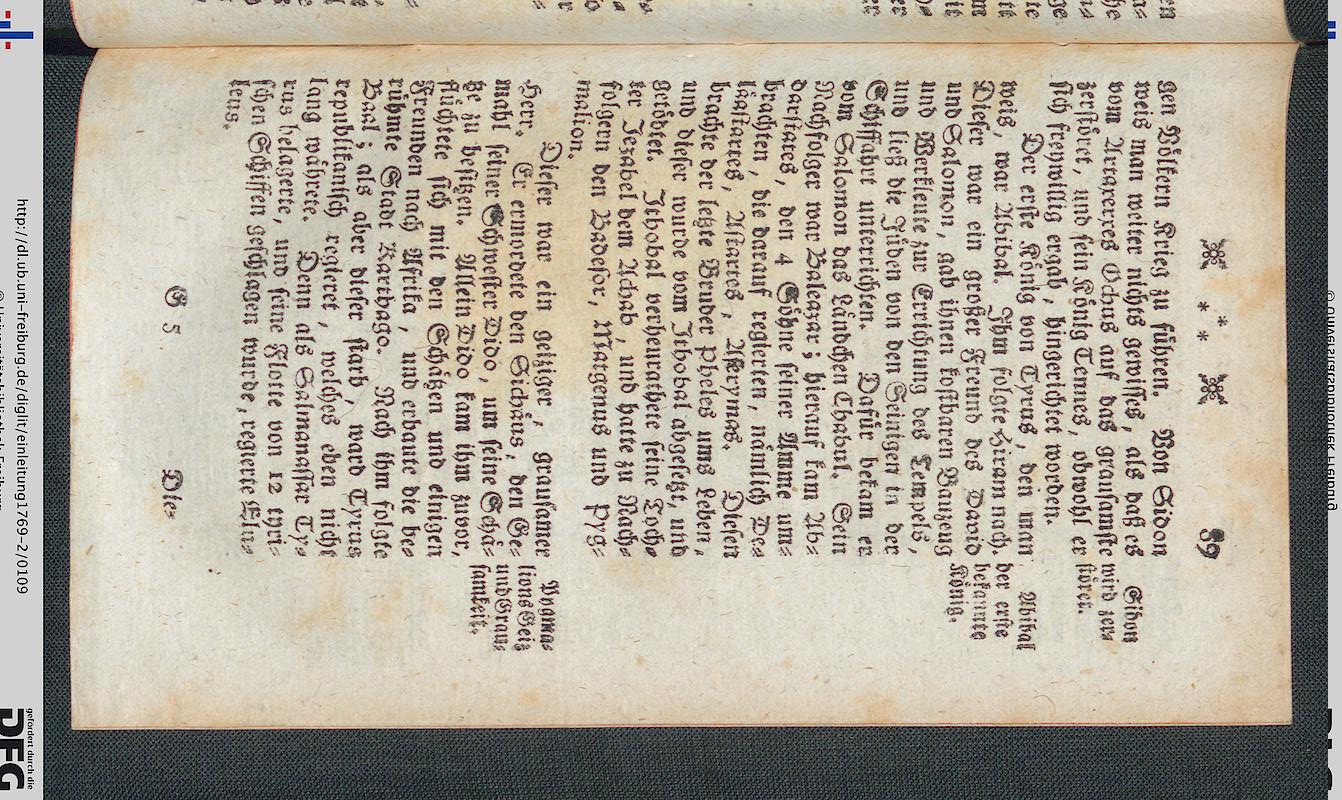 89
gen Völkern Krieg zu führen. Von Sidon
weis man weiter nichts gewisses, als daß es
vom Artaxerxes Ochus auf das grausamste
zerstöret, und sein König Tennes, obwohl er
sich freywillig ergab, hingerichtet worden.
Sidon
wird zer-
störet.
Der erste König von Tyrus, den man
weis, war Abibal. Ihm folgte Hiram nach.
Dieser war ein großer Freund des David
und Salomon, gab ihnen kostbaren Bauzeug
und Werkleute zur Errichtung des Tempels,
und ließ die Jüden von den Seinigen in der
Schiffahrt unterrichten. Dafür bekam er
vom Salomon das Ländchen Chabul. Sein
Nachfolger war Baleazar; hierauf kam Ab-
darstates, den 4 Söhne seiner Amme um-
brachten, die darauf regierten, nämlich De-
läastartes, Astartes, Aserymas. Diesen
brachte der letzte Bruder Pheles ums Leben,
und dieser wurde vom Ithobal abgesetzt, und
getödtet. Ithobal verheurathete seine Toch-
ter Jezabel dem Achab, und hatte zu Nach-
folgern den Badesor, Matgenus und Pyg-
malion.
Abibal
der erste
bekannte
König.
Dieser war ein geitziger, grausamer
Herr. Er ermordete den Sichäus, den Ge-
mahl seiner Schwester Dido, um seine Schä-
tze zu besitzen. Allein Dido kam ihm zuvor,
flüchtete sich mit den Schätzen und einigen
Freunden nach Afrika, und erbaute die be-
rühmte Stadt Karthago. Nach ihm folgte
Baal; als aber dieser starb, ward Tyrus
republikanisch regieret, welches eben nicht
lang währete. Denn als Salmanassar Ty-
rus belagerte, und seine Flotte von 12 tyri-
schen Schiffen geschlagen wurde, regierte Elu-
leus.
Pygma-
lions Geiz
und Grau-
samkeit.
G 5
Die-
http://dl.ub.uni-freiburg.de/diglit/einleitung1769-2/0109
© Universitätsbibliothek Freiburg
gefördert durch die
DFG